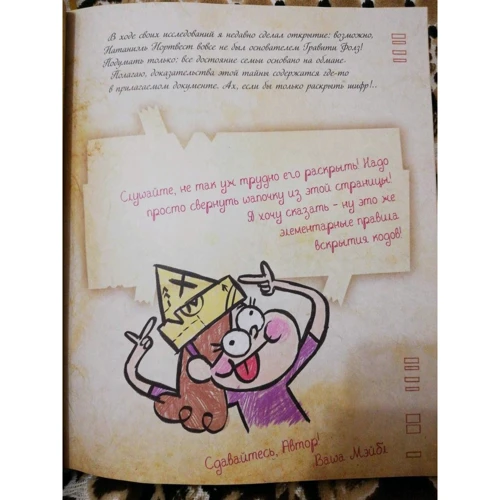 В ходе своих исследований я недавно сделал открытие: возможно,
Натаниэль Нортвест вовсе не был основателем Гравити Фолз!
Подумать только: все достояние семьи основано на обмане.
Полагаю, доказательства этой тайны содержатся где-то
в прилагаемом документе. Ах, если бы только раскрыть шифр!..
Слушайте, не так уж трудно его раскрыть! Надо
просто свернуть шапочку из этой страницы!
Я хочу сказать - ну это же
элементарные правила
вскрытия кодов!
Сдавайтесь, Автор!
Ваша Мэйбл